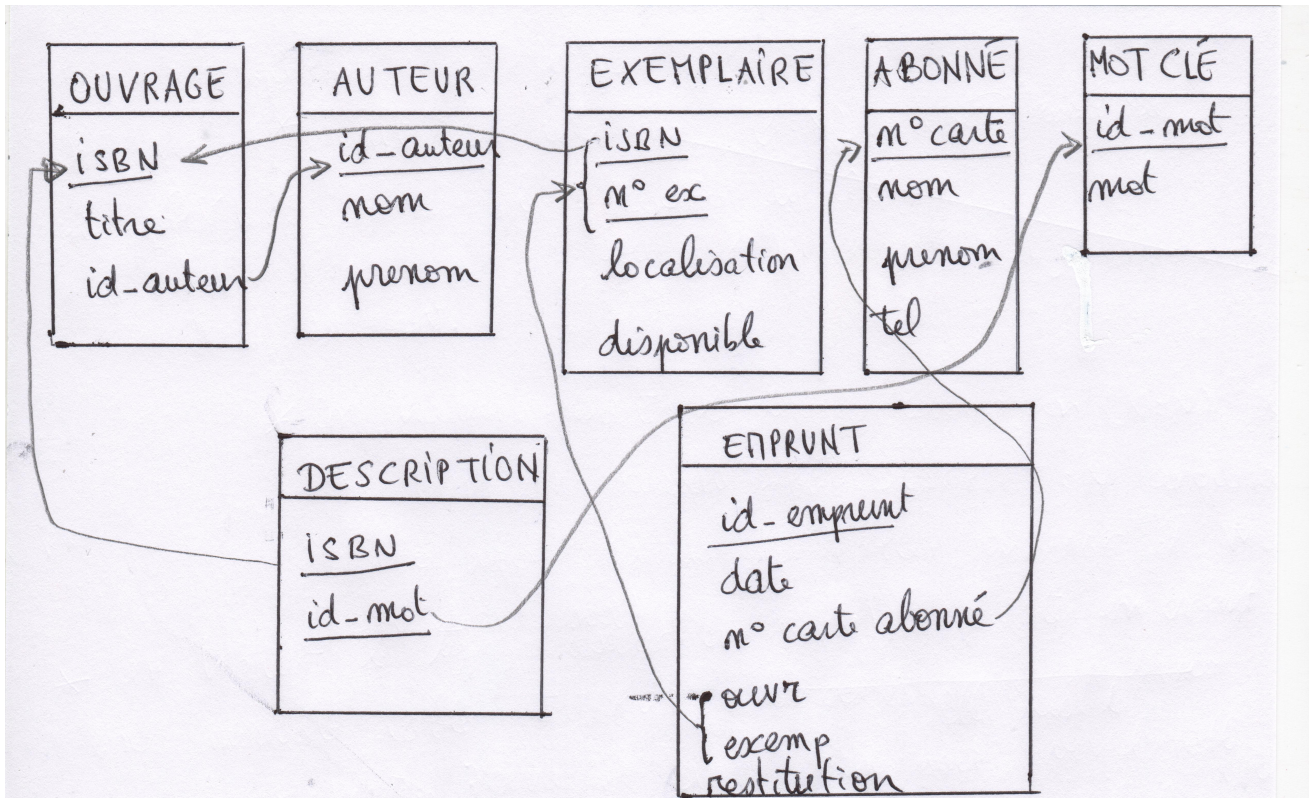 OUVRAGE
ISBN
titre
id_auteur
AUTEUR
id_auteur
nom
prenom
EXEMPLAIRE
ISBN
n° ex
localisation
disponible
ABONNÉ
n° carte
nom
prenom
tel
MOT CLÉ
id_mot
mot
DESCRIPTION
ISBN
id_mot
EMPRUNT
id_emprunt
date
n° carte abonné
ouvr
exemp
restitution